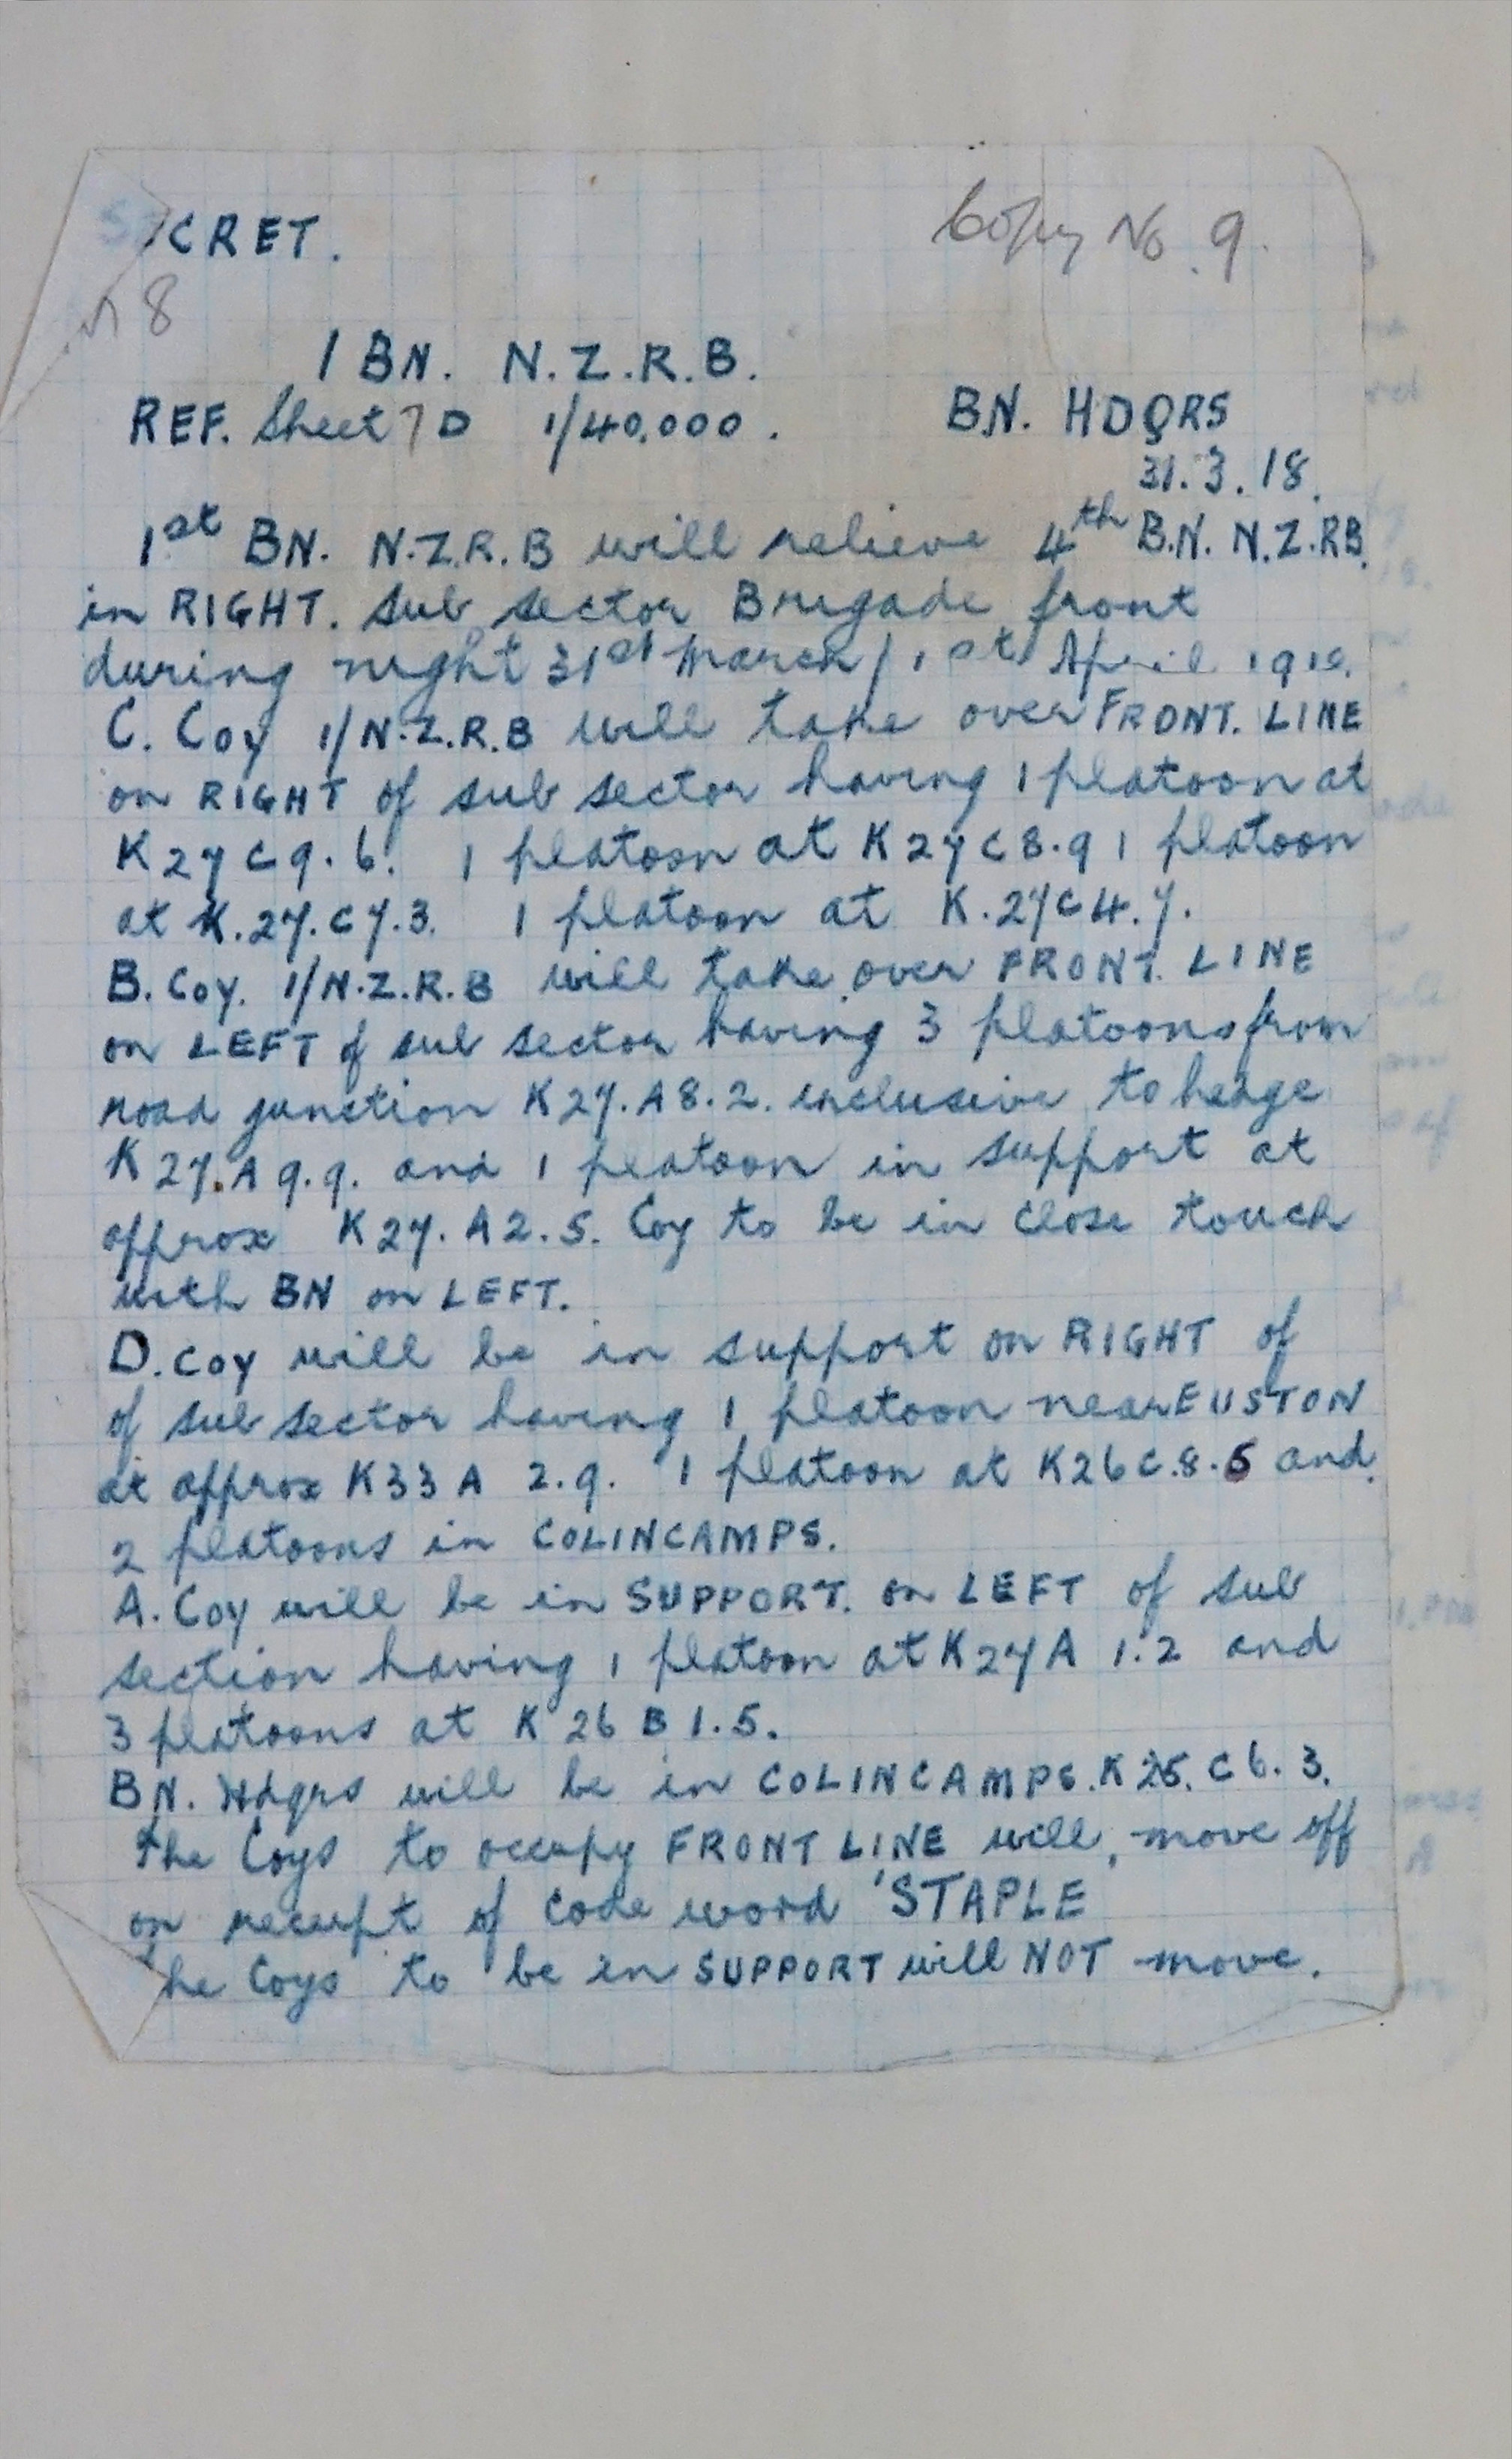 SECRET.
Copy No. 9.
8
1 BN. N.Z.R.B.
REF. Sheet 7D 1/40,000. BN. HDQRS
31.3.18.
1st BN. N.Z.R.B will relieve 4th B.N. N.Z.RB.
in RIGHT. sub sector Brigade front
during night 31st March / 1st April 1918.
C. Coy 1/N.Z.R.B will take over FRONT. LINE
on RIGHT of sub sector having 1 platoon at
K27C9.6. 1 platoon at K27C8.9 1 platoon
at K.27.C7.3. 1 platoon at K.27C4.7.
B. Coy. 1/N.Z.R.B will take over FRONT. LINE
on LEFT of sub sector having 3 platoons from
road junction K27.A8.2. inclusive to hedge
K27.A9.9. and 1 platoon in support at
approx K27.A2.5. Coy to be in close touch
with BN on LEFT.
D. Coy will be in support on RIGHT of
of sub sector having 1 platoon near EUSTON
at approx K33A 2.9. 1 platoon at K26C.8.5 and.
2 platoons in COLINCAMPS.
A. Coy will be in SUPPORT. on LEFT of sub
section having 1 platoon at K27A 1.2 and
3 platoons at K26B1.5.
BN. Hdqrs will be in COLINCAMPS. K25.C6.3.
The Coys to occupy FRONT LINE will, move off
on receipt of code word 'STAPLE
The Coys to be in SUPPORT will NOT move.